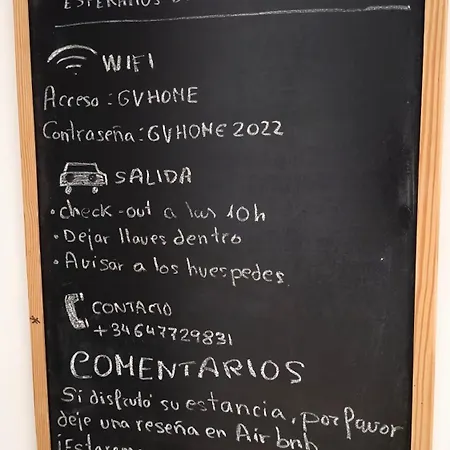 ESPERAMOS
WIFI
Acceso : GVHOME
Contraseña : GVHOME 2022
SALIDA
• check-out a las 10h
• Dejar llaves dentro
• Avisar a los huespedes.
CONTACTO
+34647729831
COMENTARIOS
Si disfrutó su estancia, por favor
deje una reseña en Airbnb
¡Estaremos